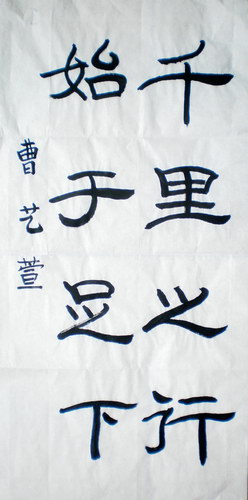 千里之行
始于足下
曹艺萱